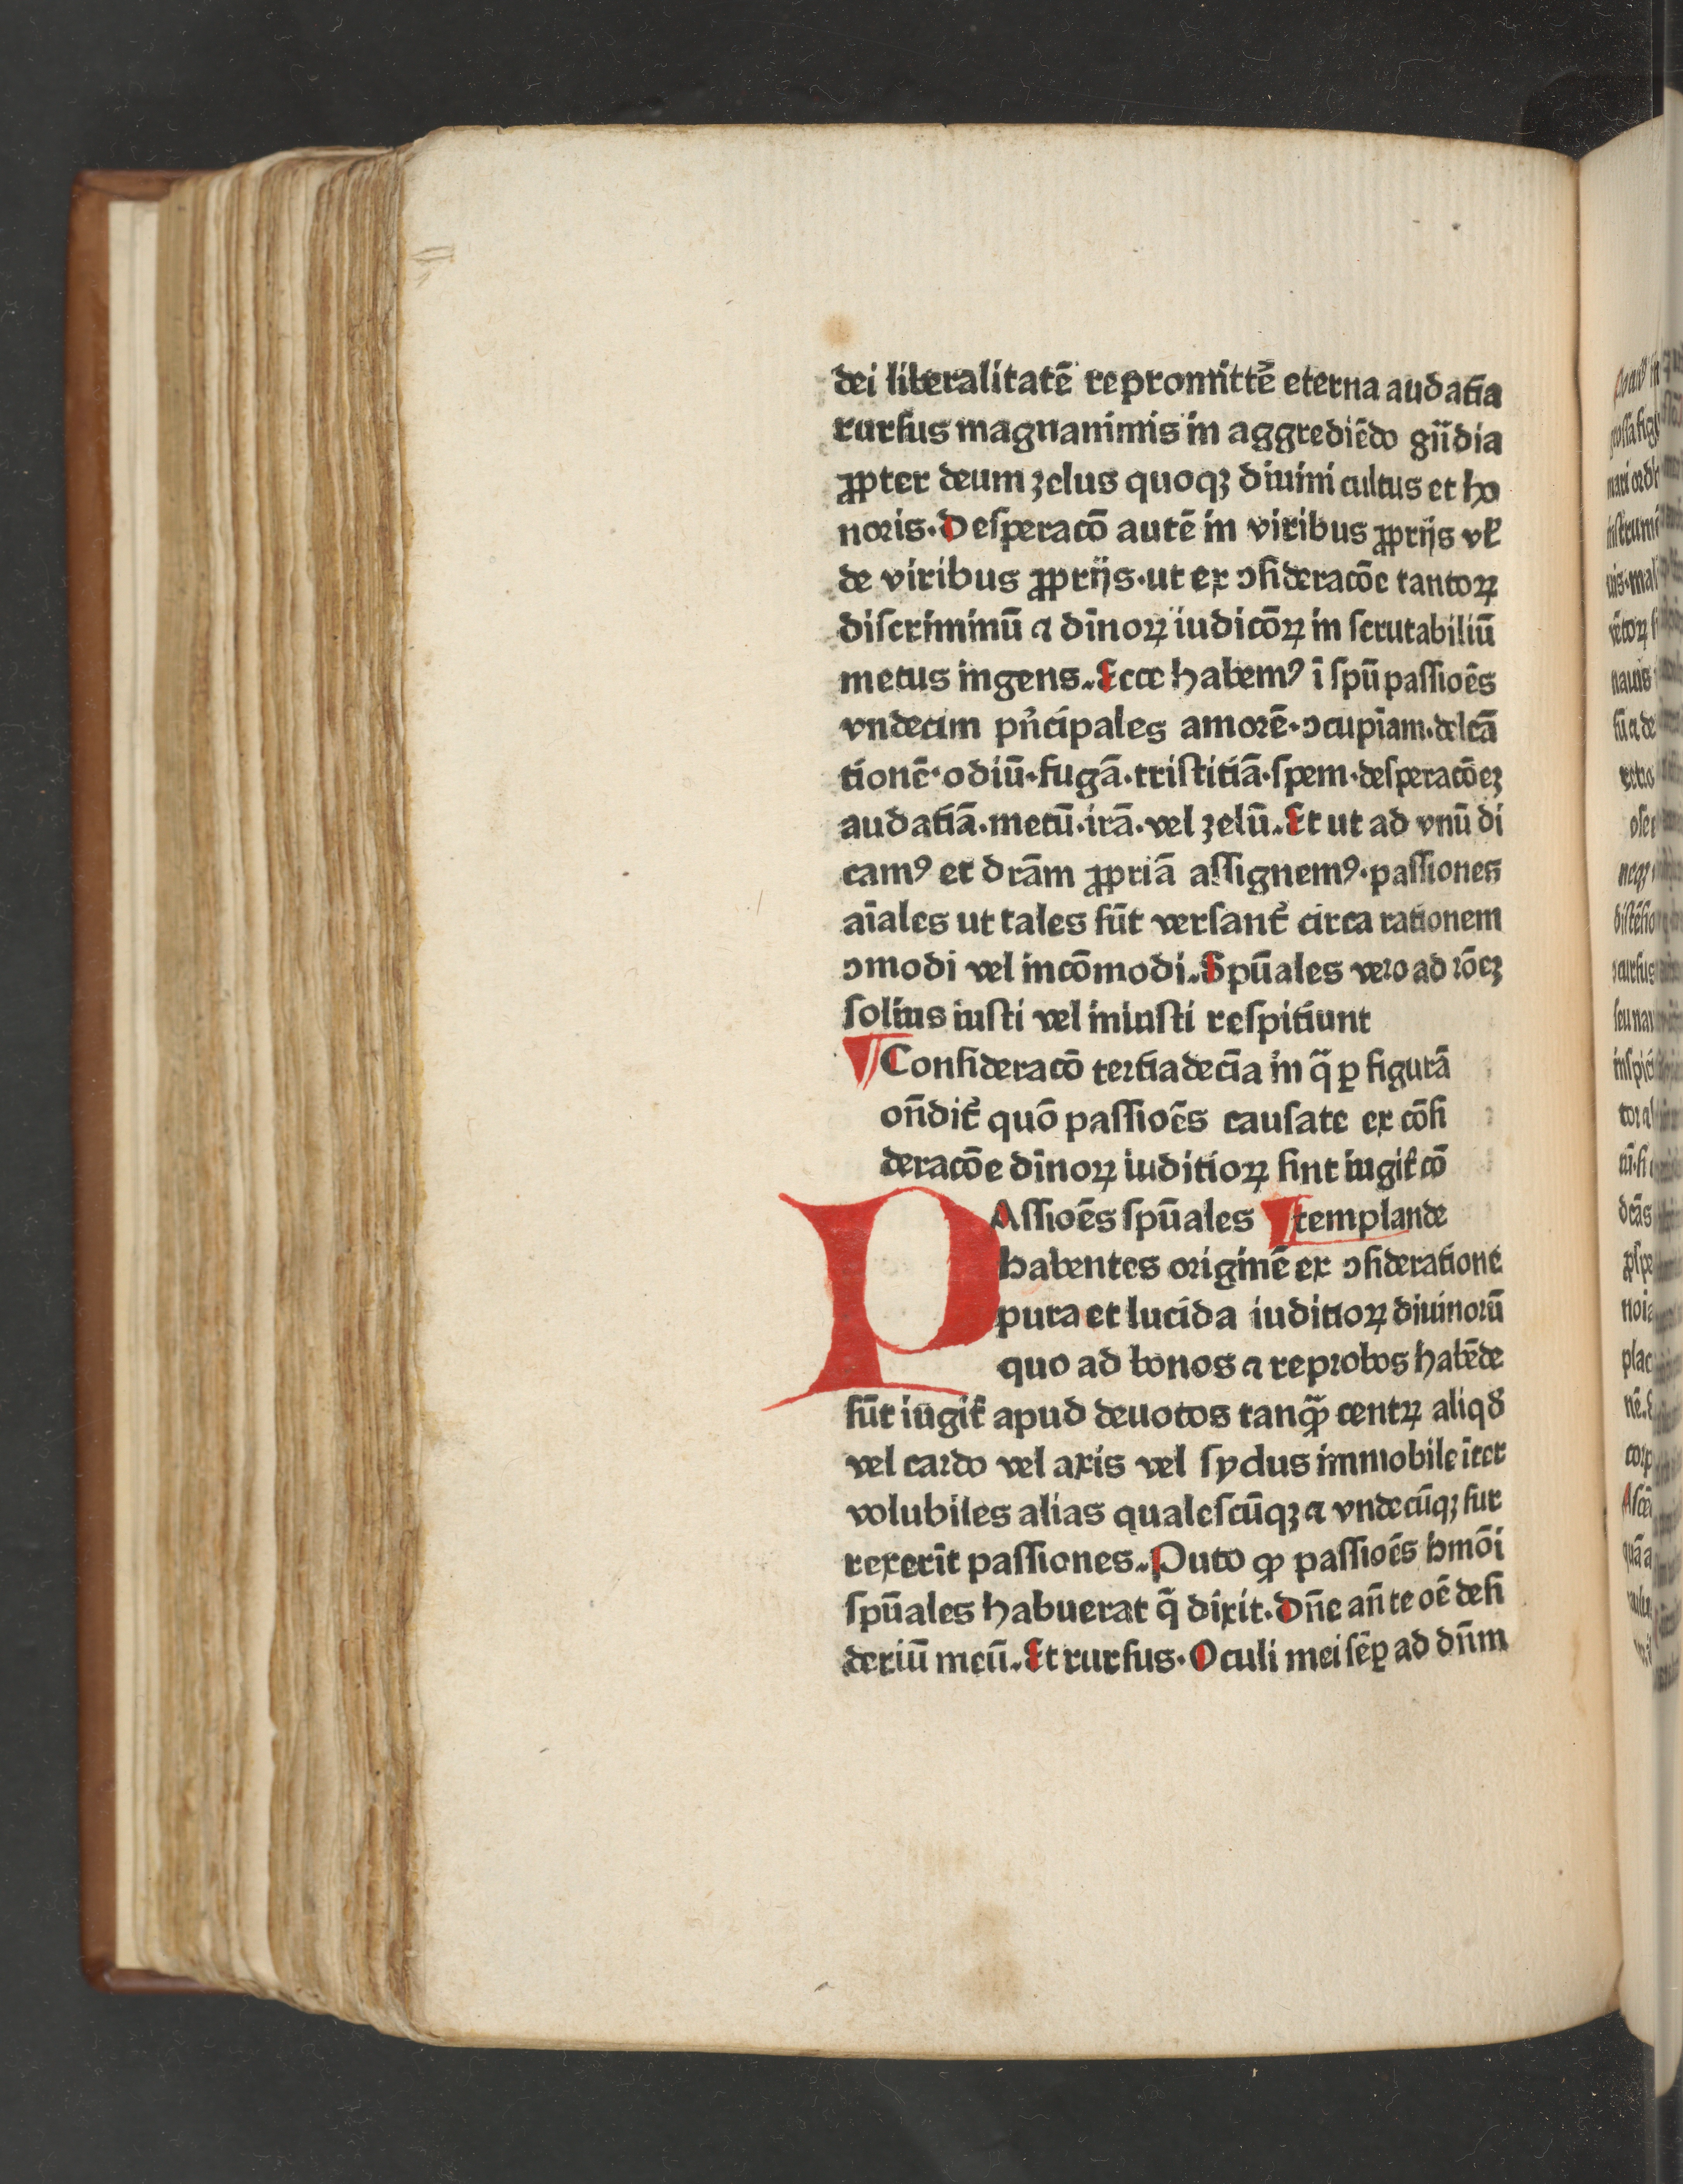 dei liberalitatē repromittē eterna audatia
rursus magnanimis in aggrediēdo gñdia
ꝓpter deum zelus quoqꝫ diuini cultus et ho
noris. Desperacō autē in viribus ꝓprijs vł
de viribus ꝓprijs. ut ex ↄſideracōe tantoꝝ
diſcriminū ⁊ dīnoꝝ iudicōꝝ in ſcrutabiliū
metus ingens. Ecce habemꝰ ī ſpū paſſioēs
vndecim pñcipales amorē. ↄcupīam. delcā
tionē. odiū. fugā. triſtitiā. ſpem. deſperacōeꝫ
audatiā. metū. irā. vel zelū. Et ut ad vnū di
camꝰ et dr̄am ꝓpriā aſſignemꝰ. paſſiones
aīales ut tales ſūt verſant̄ circa rationem
ↄmodi vel incōmodi. Spūales vero ad rōeꝫ
ſolius iuſti vel iniuſti reſpitiunt
Conſideracō tertiadecīa in q̄ ꝑ figurā
oñdit̄ quō paſſioēs cauſate ex cōſi
deracōe dīnoꝝ iuditioꝝ ſint iugit̄ cō
PAſſioēs ſpūales templande
habentes originē ex ↄſideratione
pura et lucida iuditioꝝ diuinorū
quo ad bonos ⁊ reprobos habēde
ſūt iūgit̄ apud deuotos tanqͣꝫ centꝝ aliqd̓
vel cardo vel axis vel ſydus immobile īter
volubiles alias qualeſcūqꝫ ⁊ vndecūqꝫ ſur
rexerīt paſſiones. Puto ꝙ paſſioēs hmōi
ſpūales habuerat q̄ dixit. Dñe añte oē deſi
deriū meū. Et rurſus. Oculi mei ſēꝑ ad dñm